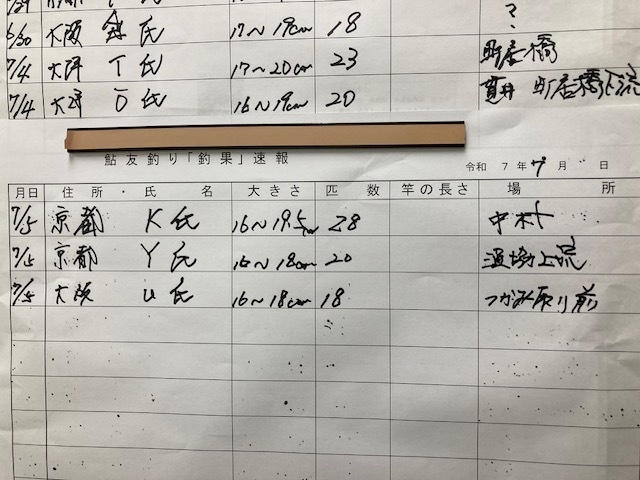 6/30 大阪 氏 17～19cm 18 ?
7/4 大津 T氏 17～20cm 23 町居橋
7/4 大津 O氏 16～19cm 20 貫井 町居橋下流
鮎友釣り「釣果」速報
令和 7年 7月 日
月日 住所・氏名 大きさ 匹数 竿の長さ 場所
7/5 京都 K氏 16～19.5cm 28 中村
7/5 京都 Y氏 16～18cm 20 上流
7/5 大阪 U氏 16～18cm 18 つかみ取り前